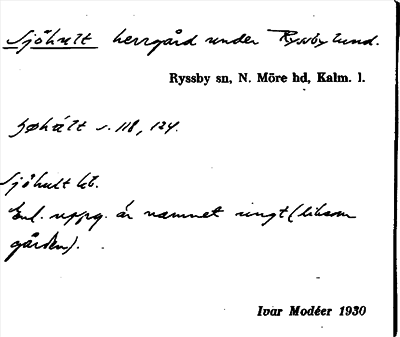 Sjöhult herrgård under Ryssbylund.
Ryssby sn, N. Möre hd, Kalm. l.
s. 118, 124.
Sjöhult hb.
Enl. uppg. är namnet ungt (liksom
gården).
Ivar Modéer 1930